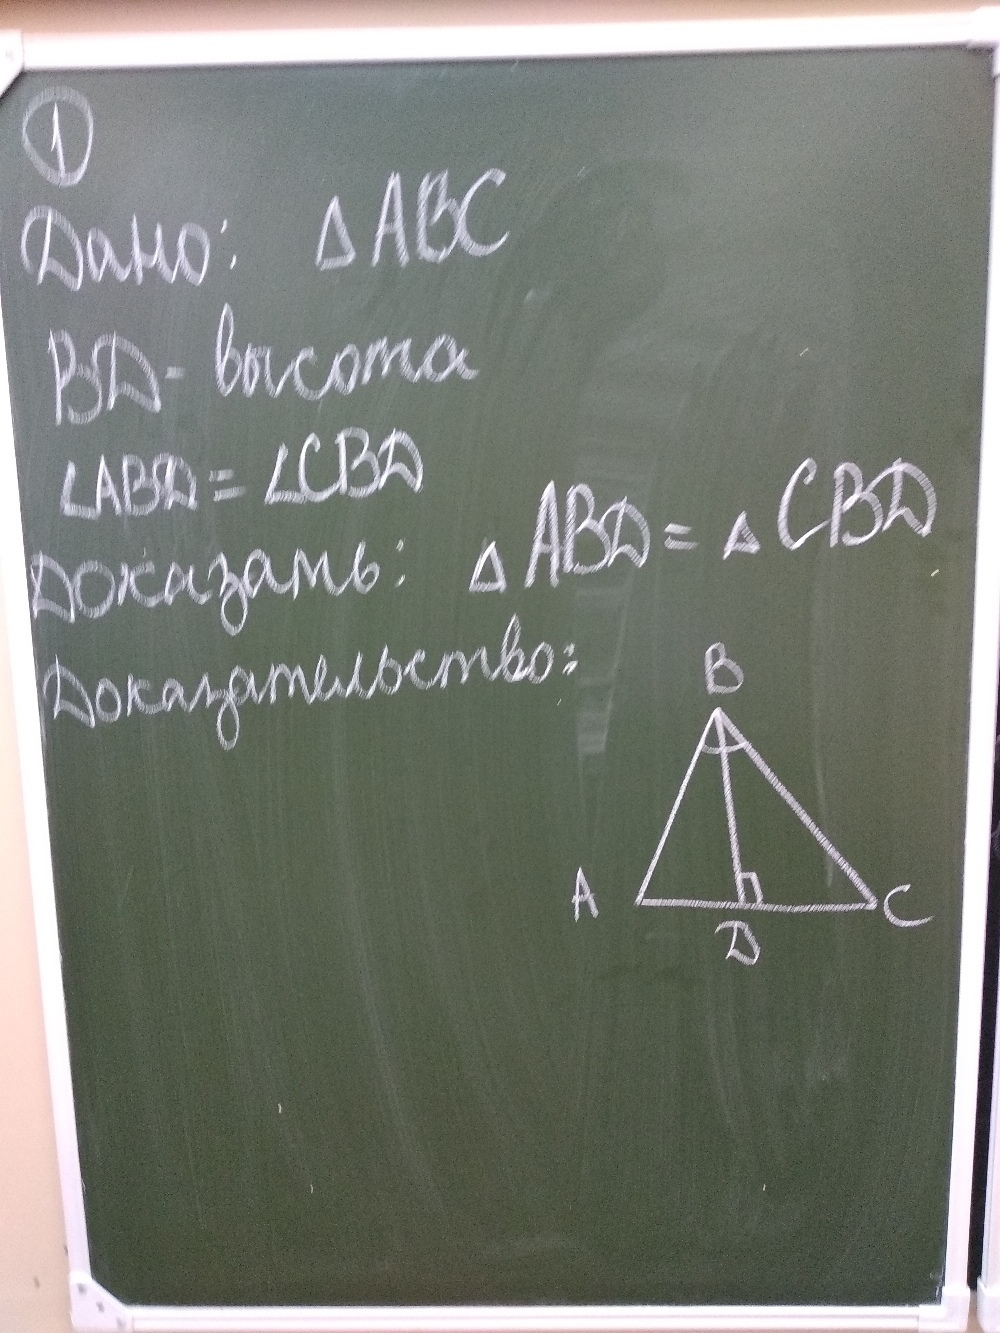 1
Дано: △ABC
BD - высота
∠ABD = ∠CBD
Доказать: △ABD = △CBD
Доказательство:
B
A
C
D